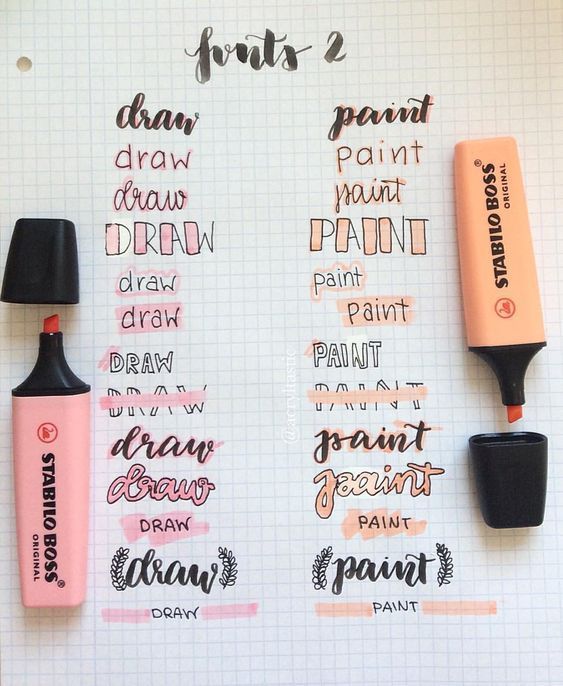 fonts 2
draw paint
draw paint
draw paint
DRAW PAINT
draw paint
draw paint
DRAW PAINT
DRAW PAINT
draw paint
draw paint
DRAW PAINT
draw paint
DRAW PAINT
STABILO BOSS
ORIGINAL
STABILO BOSS®
ORIGINAL